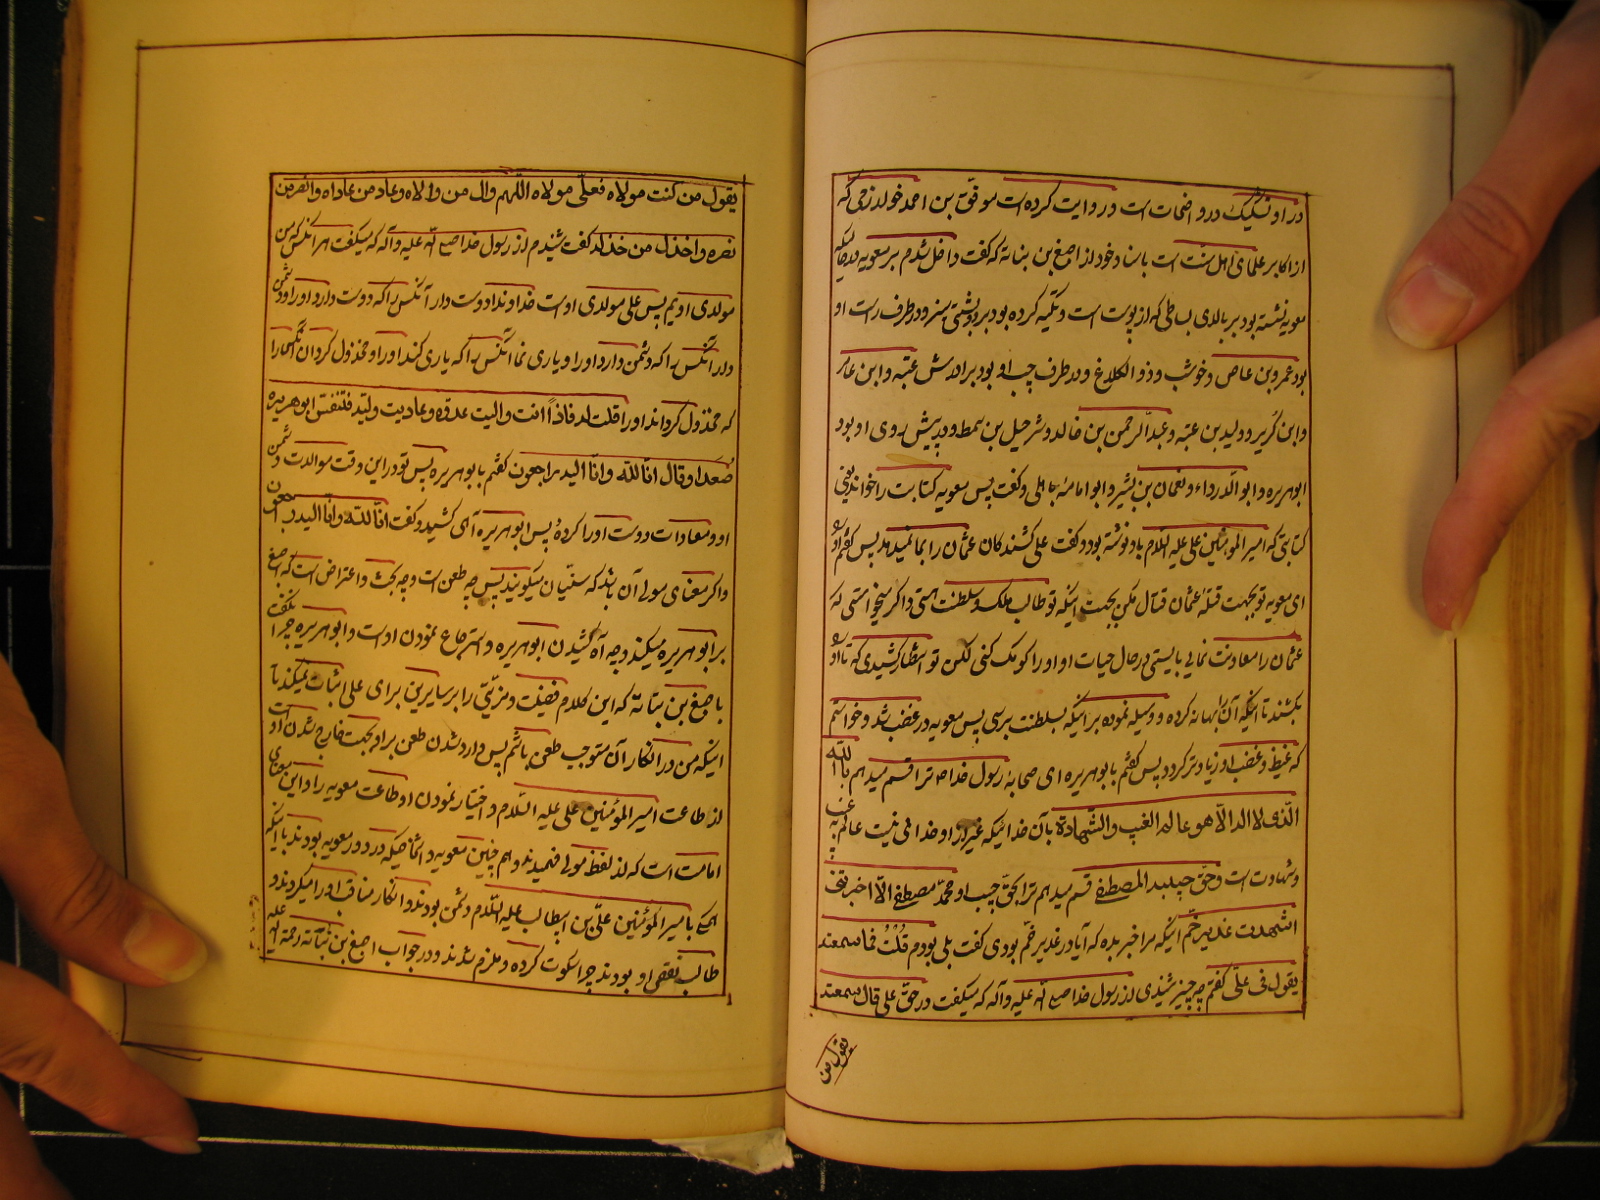 در او تشکیک در واضحات است و روایت کرده است موفق بن احمد خوارزمی که
از اکابر علمای اهل سنت است باسناد خود از اصبغ بن بناته که گفت داخل شدم بر معویه در حالیکه
معویه نشسته بود بر بالای بساطی که از پوست است و تکیه کرده بود بر دو پشتی سبز و در طرف راست او
بود عمرو بن عاص و حوشب و ذو الکلاع و در طرف چپ او بود برادرش عتبه و ابن عامر
و ابن کریز و ولید بن عتبه و عبد الرحمن بن خالد و شرحیل بن سمط و در پیش روی او بود
ابوهریره و ابو الدرداء و نعمان بن بشیر و ابو امامهٔ باهلی و گفت پس معویه کتابت را خواند یعنی
کتابی که امیر المؤمنین علی علیه السلام باو نوشته بود و گفت علی کشندکان عثمان را بما نمیدهد پس گفتم او را
ای معویه تو بجهت قتلهٔ عثمان قتال مکن بجهت اینکه تو طالب ملک و سلطنت هستی و اگر میخواستی که
عثمان را معاونت نمایی بایستی در حال حیات او او را کومک کنی لکن تو انتظار کشیدی که تا او را
بکشند تا اینکه آن را بهانه کرده و وسیله نموده بر اینکه بسلطنت برسی پس معویه در غضب شد و خواستم
که غیظ و غضب او زیادتر کردد پس گفتم بابوهریره ای صحابهٔ رسول خدا ص ترا قسم میدهم بالله
الذی لا اله الا هو عالم الغیب و الشهادة بآن خدائیکه غیر از او خدائی نیست عالم بغیب
و شهادت است و حق حبیبه المصطفی قسم میدهم ترا بحق حبیب او محمد مصطفی الا اخبرتنی
اشهدت غدیر خم اینکه مرا خبر بده که آیا در غدیر خم بودی گفت بلی بودم قلت فما سمعته
یقول فی علی گفتم چه چیز شنیدی از رسول خدا صلی الله علیه و آله که میگفت در حق علی قال سمعته
یقول من
یقول من کنت مولاه فعلی مولاه اللهم وال من والاه و عاد من عاداه و انصر من
نصره و اخذل من خذله گفت شنیدم از رسول خدا صلی الله علیه و آله که میگفت هر آنکس که من
مولای اویم پس علی مولای اوست خداوندا دوست دار آنکس را که دوست دارد او را و دشمن
دار آنکس را که دشمن دارد او را و یاری نما آنکس را که یاری کند او را و مخذول کردان آنکس را
که مخذول کرداند او را قلت له فاذاً انت والیت عدوه و عادیت ولیه فتنفس ابوهریره
صعدا و قال انا لله و انا الیه راجعون گفتم بابوهریره پس تو در این وقت موالات دشمن
او و معادات دوست او را کردهٔ پس ابوهریره آهی کشید و گفت انا لله و انا الیه راجعون
و اگر معنای مولی آن باشد که سنیان میگویند پس چه طعن است و چه بحث و اعتراض است که اصبغ
بر ابوهریره میکند و چه آه کشیدن ابوهریره و استرجاع نمودن اوست و ابوهریره چرا نگفت
باصبغ بن بناته که این کلام فضیلت و مزیتی را بر سایرین برای علی اثبات نمیکند تا
اینکه من در انکار آن مستوجب طعن باشم پس وارد شدن طعن بر او بجهت خارج شدن اوست
از طاعت امیر المؤمنین علی علیه السلام و اختیار نمودن او طاعت معویه را و این معنای
امامت است که از لفظ مولی فهمیدند و هم چنین معویه و اشخاصیکه در دور معویه بودند با اینکه
همکی با میر المؤمنین علی بن ابیطالب علیه السلام دشمن بودند و انکار مناقب او را میکردند و
طالب نقص او بودند چرا سکوت کرده و ملزم شدند و در جواب اصبغ بن نباته رحمة الله علیه